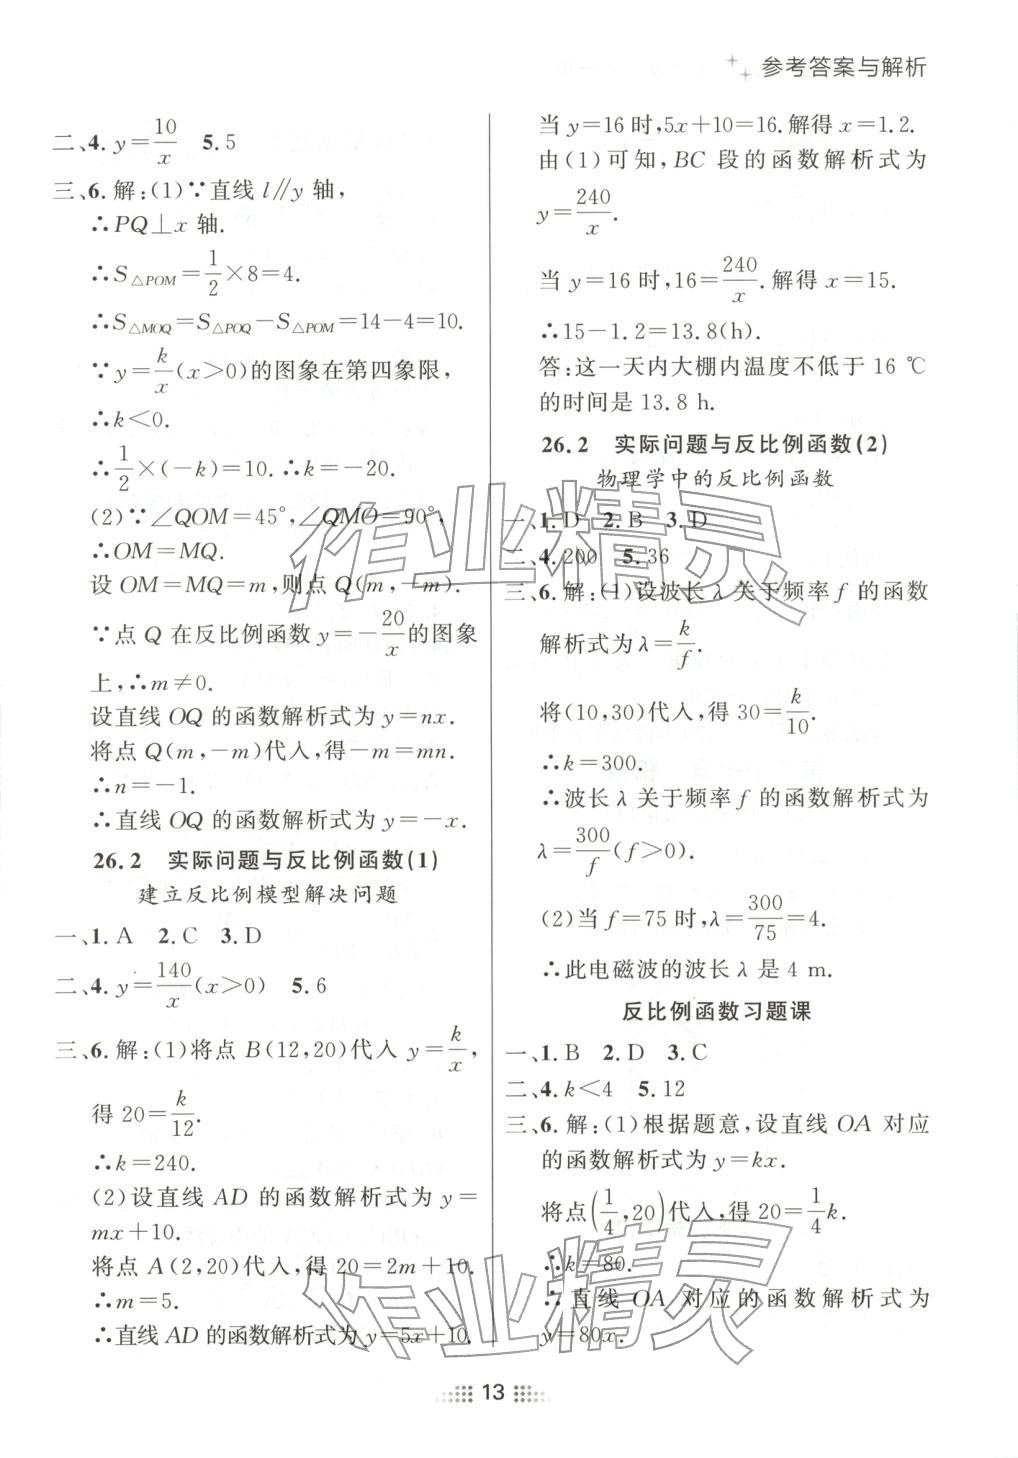 参考答案与解析
二、4. y=10/x　5. 5
三、6. 解:(1)∵直线 l∥y 轴,
∴PQ⊥x 轴.
∴S△POM=1/2×8=4.
∴S△MOQ=S△POQ-S△POM=14-4=10.
∵y=k/x(x>0)的图象在第四象限,
∴k<0.
∴1/2×(-k)=10. ∴k=-20.
(2)∵∠QOM=45°,∠QMO=90°,
∴OM=MQ.
设 OM=MQ=m,则点 Q(m,-m).
∵点 Q 在反比例函数 y=-20/x的图象
上,∴m≠0.
设直线 OQ 的函数解析式为 y=nx.
将点 Q(m,-m)代入,得-m=mn.
∴n=-1.
∴直线 OQ 的函数解析式为 y=-x.
26.2　实际问题与反比例函数(1)
建立反比例模型解决问题
一、1. A　2. C　3. D
二、4. y=140/x(x>0)　5. 6
三、6. 解:(1)将点 B(12,20)代入 y=k/x,
得 20=k/12.
∴k=240.
(2)设直线 AD 的函数解析式为 y=
mx+10.
将点 A(2,20)代入,得 20=2m+10.
∴m=5.
∴直线 AD 的函数解析式为 y=5x+10.
当 y=16 时,5x+10=16. 解得 x=1.2.
由(1)可知,BC 段的函数解析式为
y=240/x.
当 y=16 时,16=240/x. 解得 x=15.
∴15-1.2=13.8(h).
答:这一天内大棚内温度不低于 16 ℃
的时间是 13.8 h.
26.2　实际问题与反比例函数(2)
物理学中的反比例函数
一、1. D　2. B　3. D
二、4. 200　5. 36
三、6. 解:(1)设波长 λ 关于频率 f 的函数
解析式为 λ=k/f.
将(10,30)代入,得 30=k/10.
∴k=300.
∴波长 λ 关于频率 f 的函数解析式为
λ=300/f(f>0).
(2)当 f=75 时,λ=300/75=4.
∴此电磁波的波长 λ 是 4 m.
反比例函数习题课
一、1. B　2. D　3. C
二、4. k<4　5. 12
三、6. 解:(1)根据题意,设直线 OA 对应
的函数解析式为 y=kx.
将点(1/4,20)代入,得 20=1/4k.
∴k=80.
∴直线 OA 对应的函数解析式为
y=80x.
13
作业精灵
作业精灵